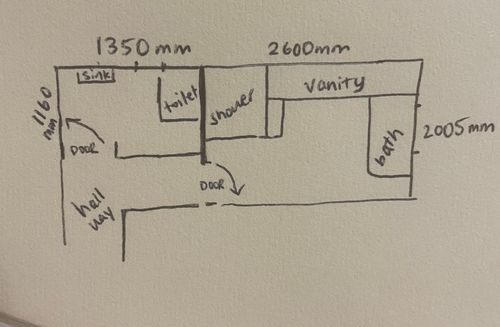 1350mm
2600mm
sink
toilet
shower
vanity
1160
mm
DOOR
bath
2005mm
DOOR
hall
way